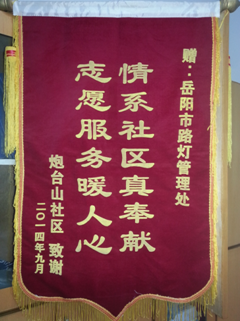 赠：岳阳市路灯管理处
情系社区真奉献
志愿服务暖人心
炮台山社区 致谢
二〇一四年九月